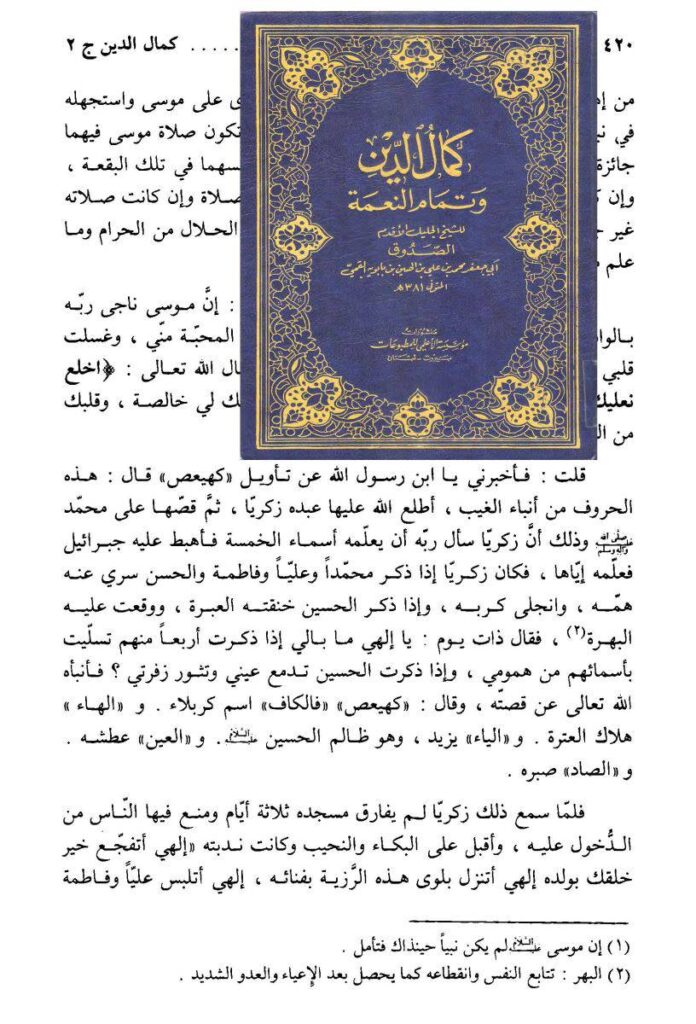 ٤٢٠ ..... كمال الدين ج ٢
من
ى على موسى واستجهله
في
تكون صلاة موسى فيهما
جائزة
سهما في تلك البقعة ،
وإن
صلاة وإن كانت صلاته
غير
الحلال من الحرام وما
علم
: إنَّ موسى ناجى ربّه
المحبّة منّي ، وغسلت
قلبي
ال الله تعالى : ﴿اخلع
نعليك
ك لي خالصة ، وقلبك
من
كمال الدين
وتمام النعمة
للشيخ الجليل الأقدم
الصدوق
أبي جعفر محمد بن علي بن الحسين بن بابويه القمي
المتوفى ٣٨١هـ
منشورات
مؤسسة الأعلمي للمطبوعات
بيروت - لبنان
قلت : فأخبرني يا ابن رسول الله عن تأويل «كهيعص» قال : هذه
الحروف من أنباء الغيب ، أطلع الله عليها عبده زكريّا ، ثمَّ قصّها على محمّد
صلى الله عليه وآله وسلم وذلك أنَّ زكريّا سأل ربّه أن يعلّمه أسماء الخمسة فأهبط عليه جبرائيل
فعلّمه إيّاها ، فكان زكريّا إذا ذكر محمّداً وعليّاً وفاطمة والحسن سري عنه
همّه ، وانجلى كربه ، وإذا ذكر الحسين خنقته العبرة ، ووقعت عليه
البهرة(٢) ، فقال ذات يوم : يا إلهي ما بالي إذا ذكرت أربعاً منهم تسلّيت
بأسمائهم من همومي ، وإذا ذكرت الحسين تدمع عيني وتثور زفرتي ؟ فأنبأه
الله تعالى عن قصّته ، وقال : «كهيعص» «فالكاف» اسم كربلاء . و «الهاء »
هلاك العترة . و «الياء» يزيد ، وهو ظالم الحسين عليه السلام . و «العين» عطشه .
و «الصاد» صبره .
فلمّا سمع ذلك زكريّا لم يفارق مسجده ثلاثة أيّام ومنع فيها النّاس من
الدُّخول عليه ، وأقبل على البكاء والنحيب وكانت ندبته «إلهي أتفجّع خير
خلقك بولده إلهي أتنزل بلوى هذه الرَّزية بفنائه ، إلهي أتلبس عليّاً وفاطمة
(١) إن موسى عليه السلام لم يكن نبياً حينذاك فتأمل .
(٢) البهر : تتابع النفس وانقطاعه كما يحصل بعد الإعياء والعدو الشديد .